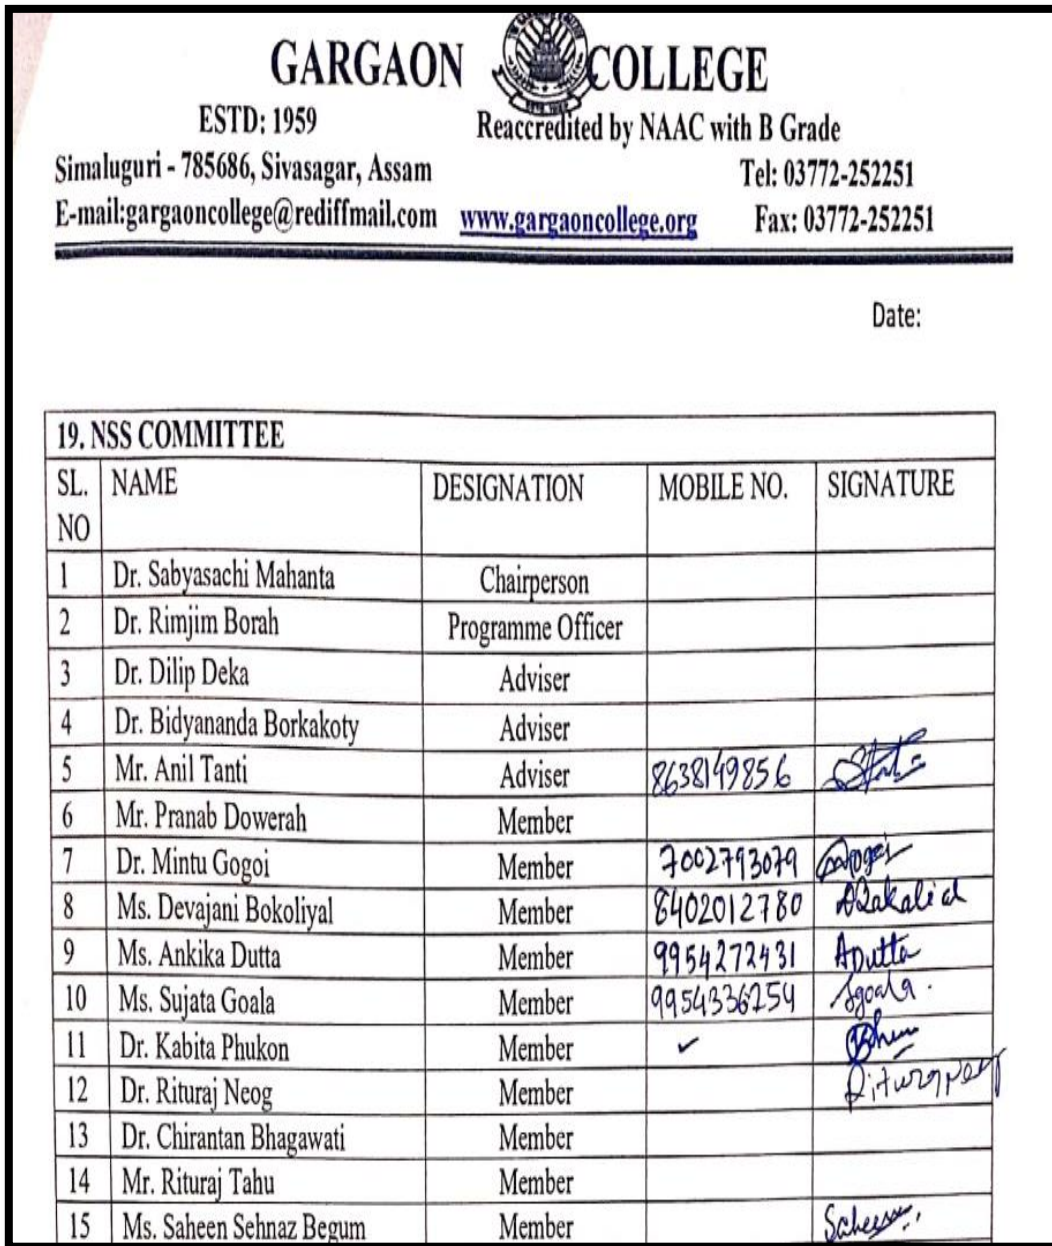 GARGAON COLLEGE
ESTD: 1959 Reaccredited by NAAC with B Grade
Simaluguri - 785686, Sivasagar, Assam Tel: 03772-252251
E-mail:gargaoncollege@rediffmail.com www.gargaoncollege.org Fax: 03772-252251
Date:
19. NSS COMMITTEE
SL. NO NAME DESIGNATION MOBILE NO. SIGNATURE
1 Dr. Sabyasachi Mahanta Chairperson
2 Dr. Rimjim Borah Programme Officer
3 Dr. Dilip Deka Adviser
4 Dr. Bidyananda Borkakoty Adviser
5 Mr. Anil Tanti Adviser 8638149856
6 Mr. Pranab Dowerah Member
7 Dr. Mintu Gogoi Member 7002793079
8 Ms. Devajani Bokoliyal Member 8402012780
9 Ms. Ankika Dutta Member 9954272431 ADutta
10 Ms. Sujata Goala Member 9954336254 Sgoala.
11 Dr. Kabita Phukon Member ✓
12 Dr. Rituraj Neog Member
13 Dr. Chirantan Bhagawati Member
14 Mr. Rituraj Tahu Member
15 Ms. Saheen Sehnaz Begum Member